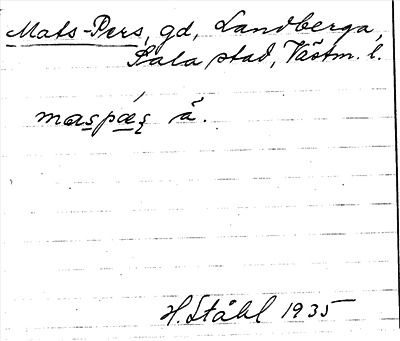 Mats-Pers, gd, Landberga,
Sala stad, Västm. l.
maspæ´ʂ ã.
H. Ståhl 1935